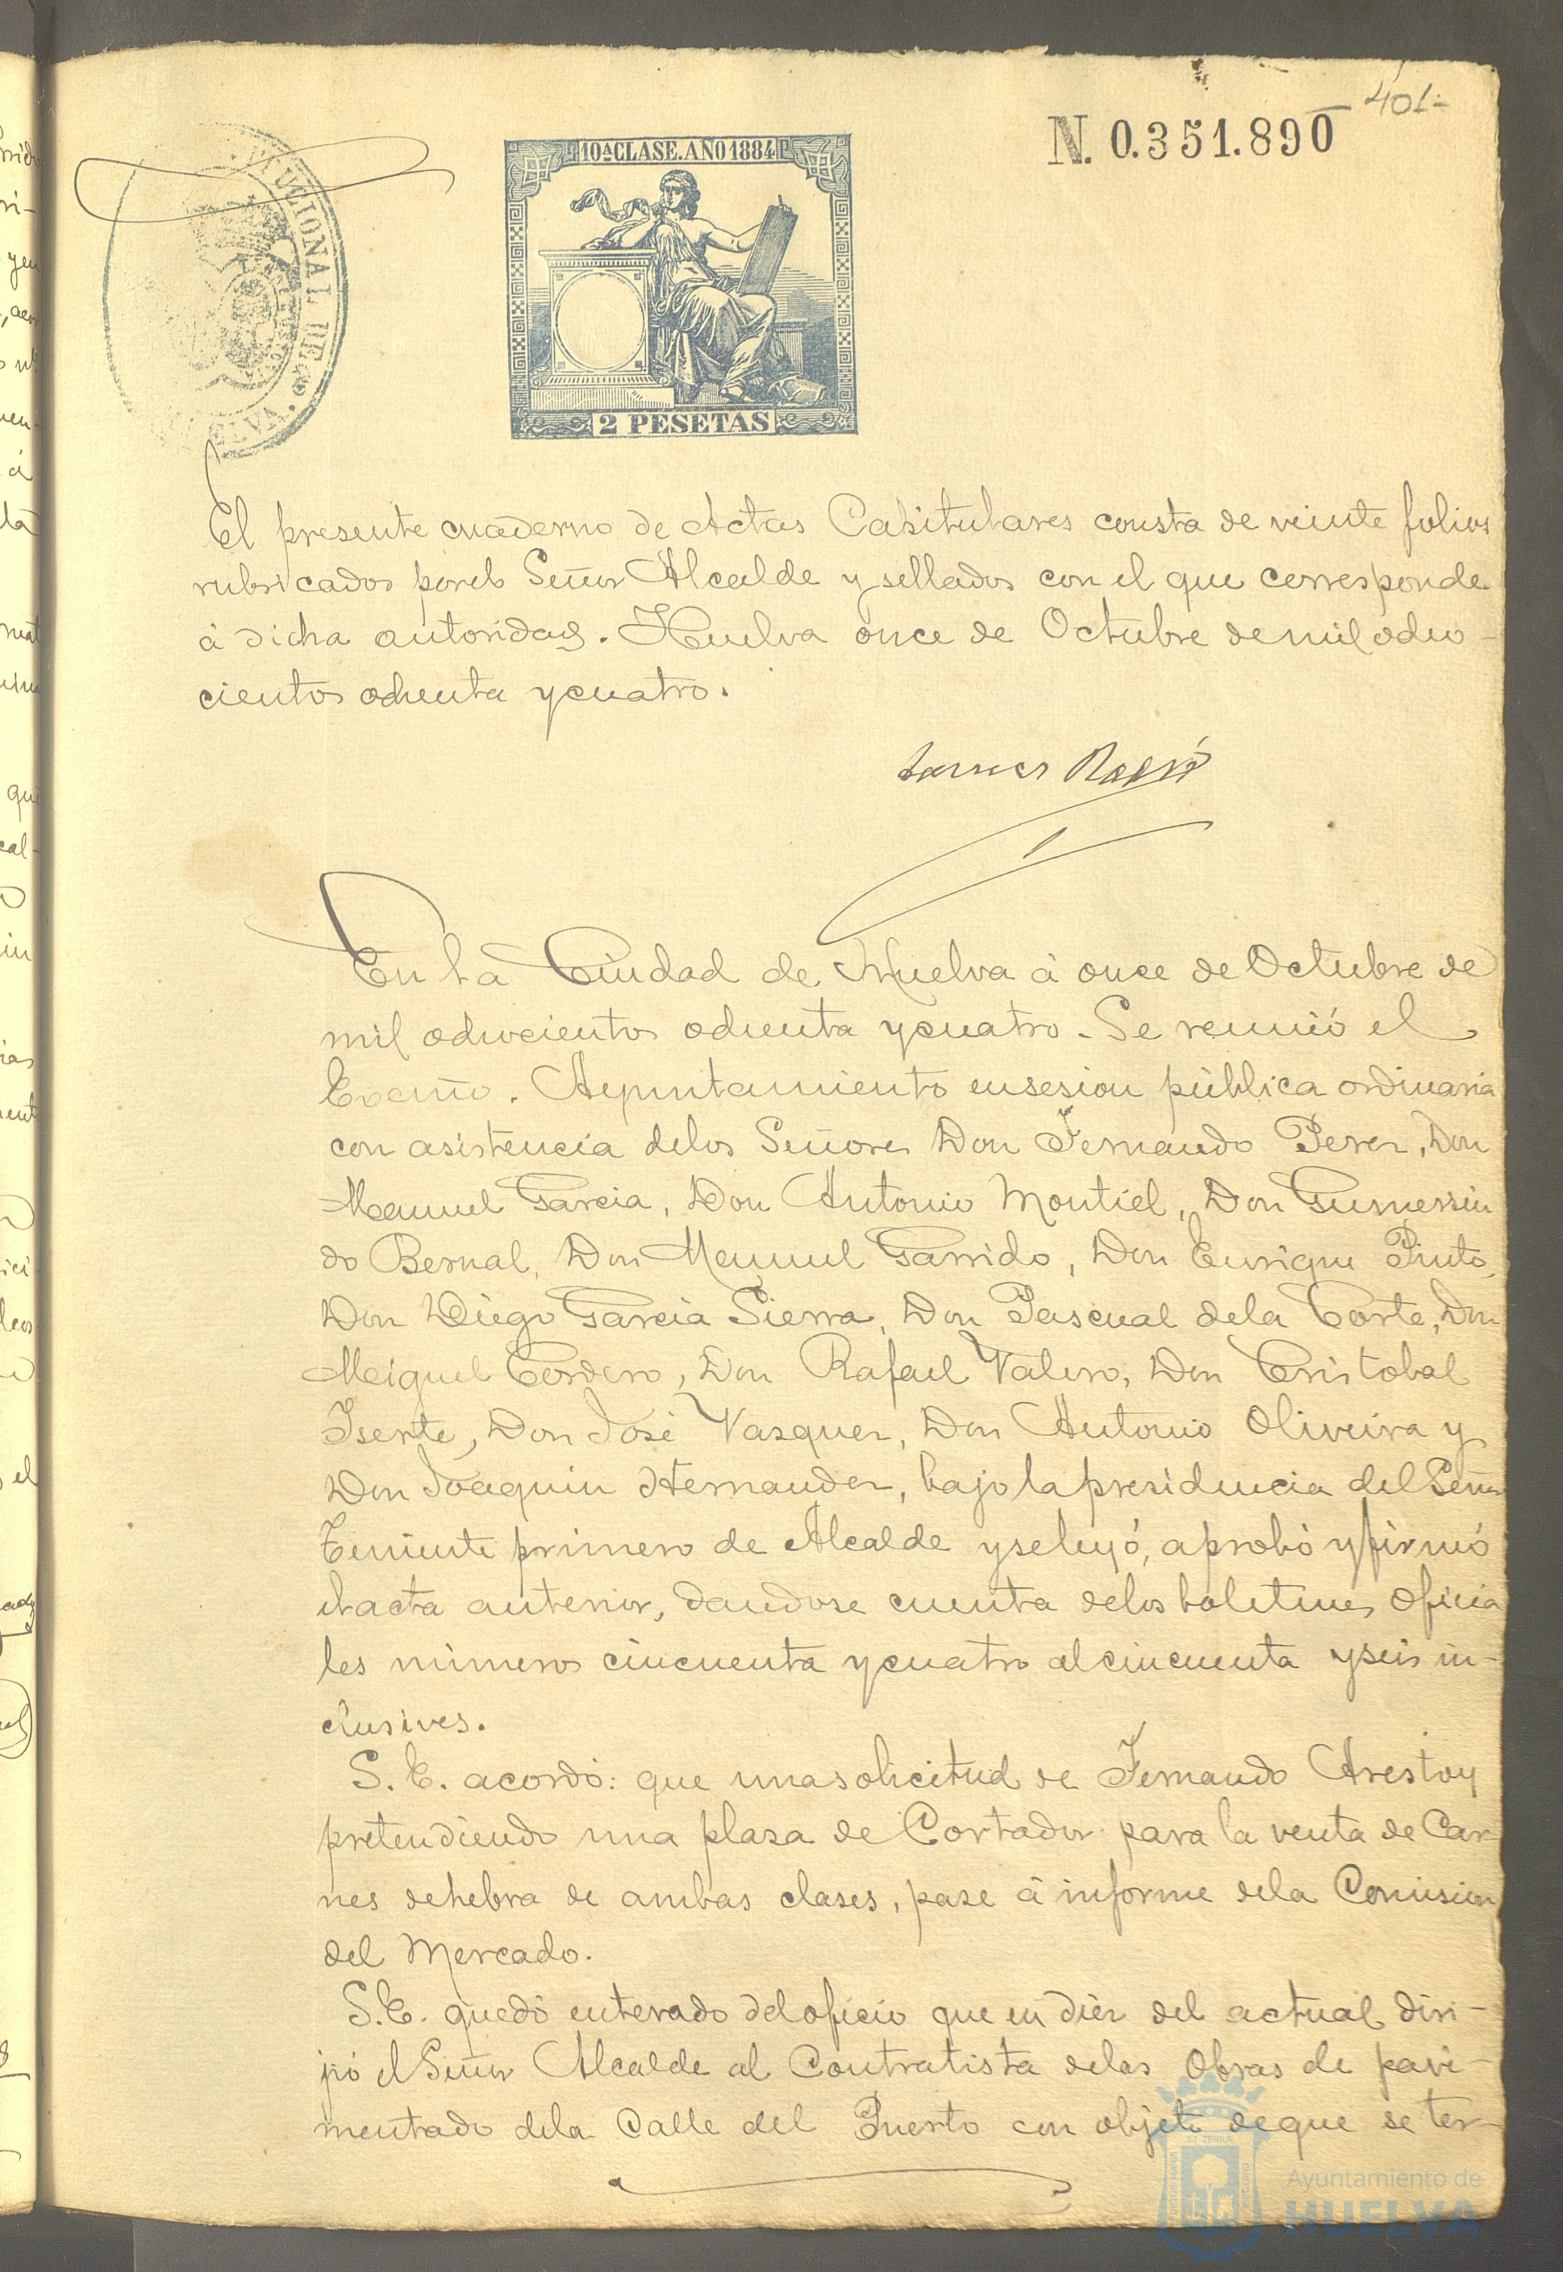 401-
N. 0.351.890
10ª CLASE. AÑO 1884
2 PESETAS
El presente cuaderno de Actas Capitulares consta de veinte folios
rubricados por el Señor Alcalde y sellados con el que corresponde
á dicha autoridad. Huelva once de Octubre de mil ocho-
cientos ochenta y cuatro.
En la Ciudad de Huelva á once de Octubre de
mil ochocientos ochenta y cuatro. Se reunió el
Excmo. Ayuntamiento en sesion pública ordinaria
con asistencia de los Señores Don Fernando Perez, Don
Manuel Garcia, Don Antonio Montiel, Don Gumersin
do Bernal, Don Manuel Garrido, Don Enrique Pinto,
Don Diego Garcia Sierra, Don Pascual de la Corte, Don
Miguel Cordero, Don Rafael Valero, Don Cristobal
Iserte, Don José Vazquez, Don Antonio Oliveira y
Don Joaquin Hernandez, bajo la presidencia del Señor
Teniente primero de Alcalde y se leyó, aprobó y firmó
el acta anterior, dandose cuenta de los boletines oficia
les números cincuenta y cuatro al cincuenta y seis in-
clusives.
S. E. acordó: que una solicitud de Fernando Arestoy
pretendiendo una plaza de Cortador para la venta de Car
nes de hebra de ambas clases, pase á informe de la Comision
del Mercado.
S. E. quedó enterado del oficio que en diez del actual diri-
jió el Señor Alcalde al Contratista de las Obras de pavi-
mentado de la Calle del Puerto con objeto de que se ter-
Ayuntamiento de
HUELVA